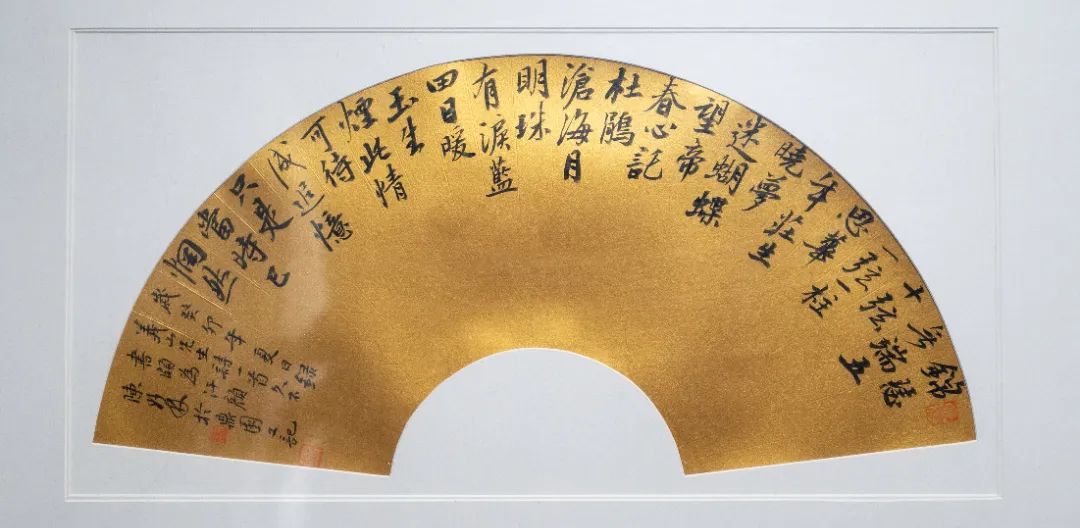 錦瑟
無端五
十弦
一弦一柱
思華
年莊生
曉夢
迷蝴蝶
望帝
春心託
杜鵑
滄海月
明珠
有淚藍
田日暖
玉生
煙此情
可待
成追憶
只是
當時已
惘然
歲癸卯年夏日錄
義山先生詩一首久不
書頗為汗顏又記
陳於鼎園